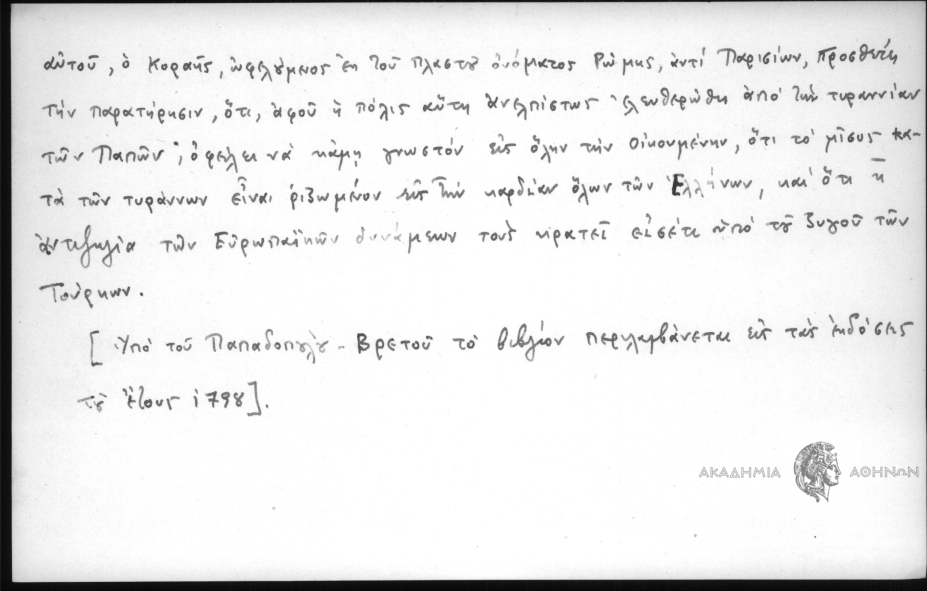 αὐτοῦ, ὁ Κοραῆς, ὠφελούμενος ἐκ τοῦ πλαστοῦ ὀνόματος Ρώμης, ἀντί Παρισίων, προσθέτει
τήν παρατήρησιν, ὅτι, ἀφοῦ ἡ πόλις αὕτη ἀνελπίστως ἐλευθερώθη ἀπό τήν τυραννίαν
τῶν Παπῶν, ὀφείλει νά κάμῃ γνωστόν εἰς ὅλην τήν Οἰκουμένην, ὅτι τό μῖσος κα-
τά τῶν τυράννων εἶναι ριζωμένον εἰς τήν καρδίαν ὅλων τῶν Ἑλλήνων, καί ὅτι ἡ
ἀντιζηλία τῶν Εὐρωπαϊκῶν δυνάμεων τούς κρατεῖ εἰσέτι ὑπό τοῦ ζυγοῦ τῶν
Τούρκων.
[Ὑπό τοῦ Παπαδοπούλου - Βρετοῦ τό βιβλίον περιλαμβάνεται εἰς τάς ἐκδόσεις
τοῦ ἔτους 1798].
ΑΚΑΔΗΜΙΑ ΑΘΗΝΩΝ